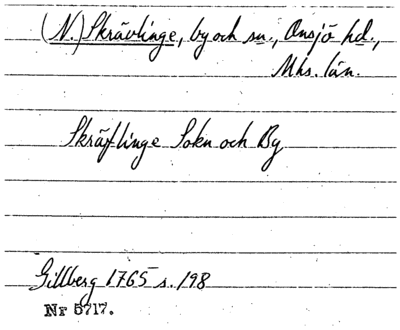 (N.) Skrävlinge, by och sn., Onsjö hd.,
Mhs. län.
Skräflinge Sokn och By
Gillberg 1765 s. 198
Nr 5717.